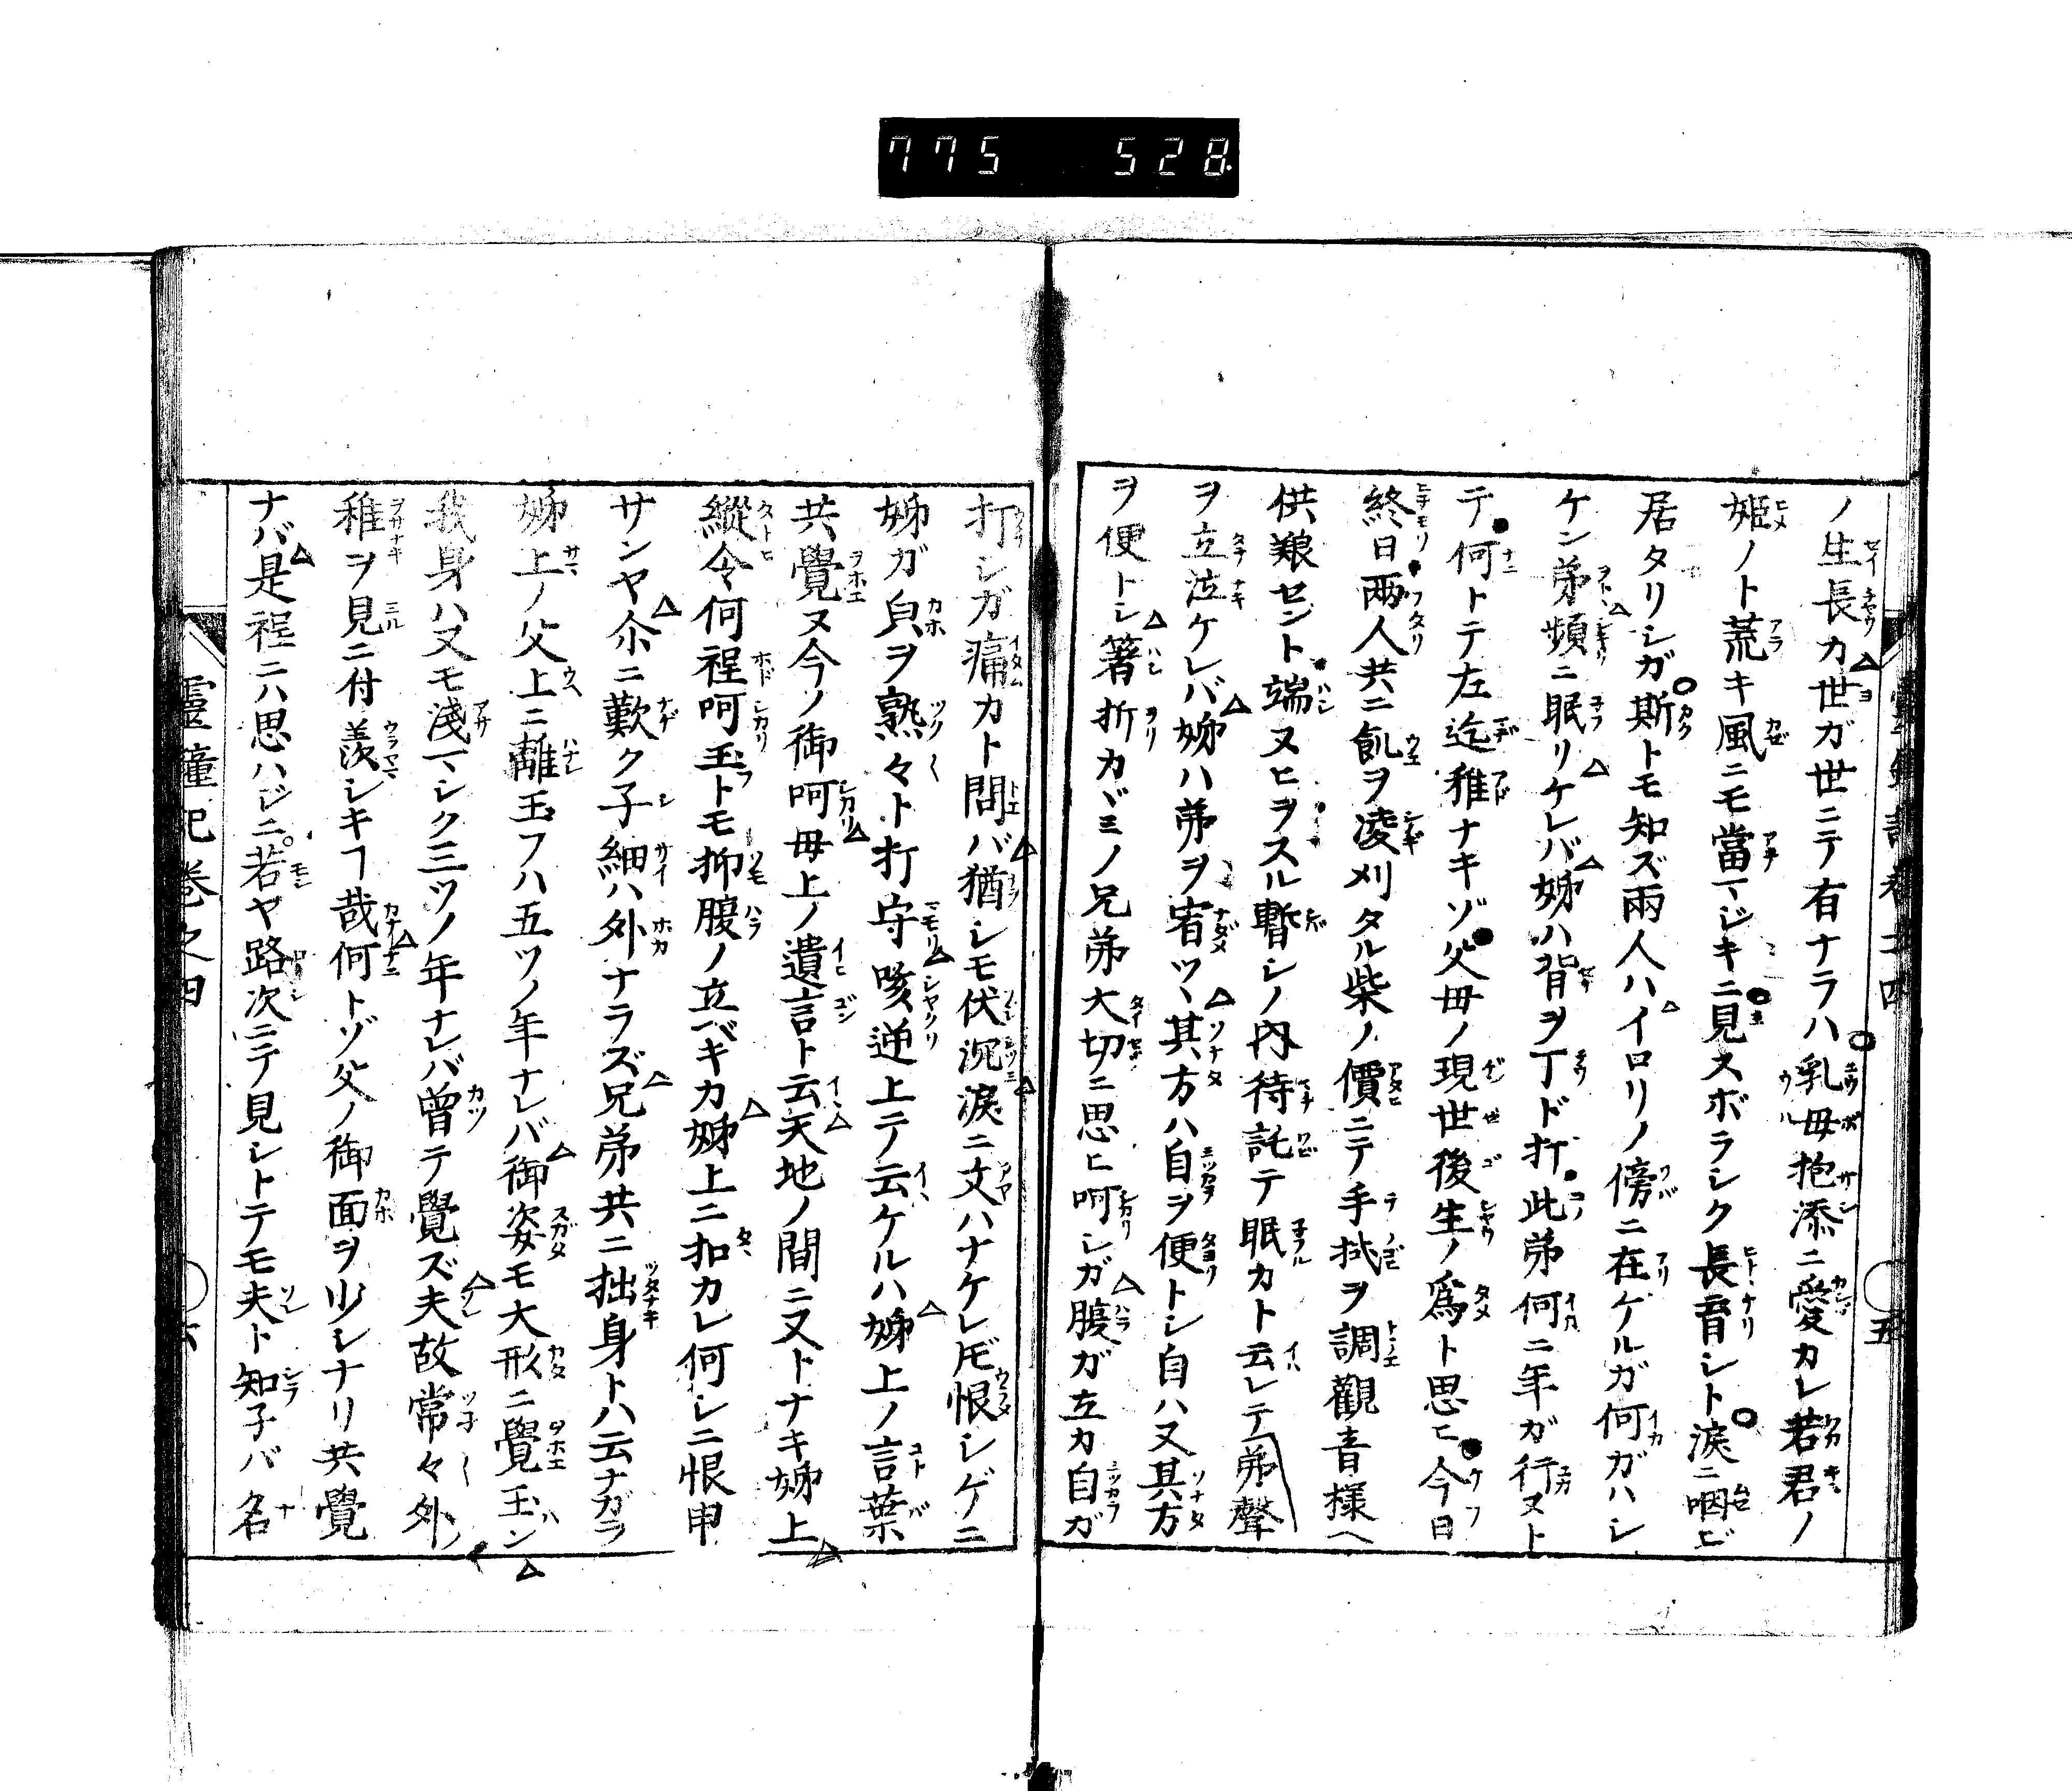 775 528
ノ生長カ世ガ世ニテ有ナラハ乳母抱添ニ愛カレ若君ノ
姫ノト荒キ風ニモ當マジキニ見スボラシク長育シト涙ニ咽ビ
居タリシガ斯トモ知ズ兩人ハイロリノ傍ニ在ケルガ何ガハシ
ケン弟頻ニ眠リケレバ姉ハ背ヲ丁ド打此弟何ニ年ガ行ヌト
テ何トテ左迄稚ナキゾ父母ノ現世後生ノ爲ト思ヒ今日
終日两人共ニ飢ヲ凌刈タル柴ノ價ニテ手拭ヲ調觀音様ヘ
供羪セント端ヌヒヲスル暫シノ内待詫テ眠カト云レテ弟聲
ヲ立泣ケレバ姉ハ弟ヲ宥ツヽ其方ハ自ヲ便トシ自ハ又其方
ヲ便トシ箸折カヾミノ兄弟大切ニ思ヒ呵シガ腹ガ立カ自ガ
打シガ痛カト問バ猶シモ伏沉涙ニ文ハナケレ𪜈恨シゲニ
姉ガ㒵ヲ熟々ト打守咳逆上テ云ケルハ姉上ノ言葉
共覺ヌ今ノ御呵母上ノ遺言ト云天地ノ間ニ又トナキ姉上
縱令何程呵玉トモ抑腹ノ立ベキカ姉上ニ扣カレ何シニ恨申
サンヤ尒ニ歎ク子細ハ外ナラズ兄弟共ニ拙身トハ云ナガラ
姉上ノ父上ニ離玉フハ五ツノ年ナレバ御姿モ大形ニ覺玉ン
我身ハ又モ淺マシク三ツノ年ナレバ曽テ覺ズ夫故常々外ノ
稚ヲ見ニ付羨シキヿ哉何トゾ父ノ御面ヲ少シナリ共覺
ナバ是程ニハ思ハジニ若ヤ路次ニテ見シトテモ夫ト知子バ名
靈鐘記卷之四
五
六